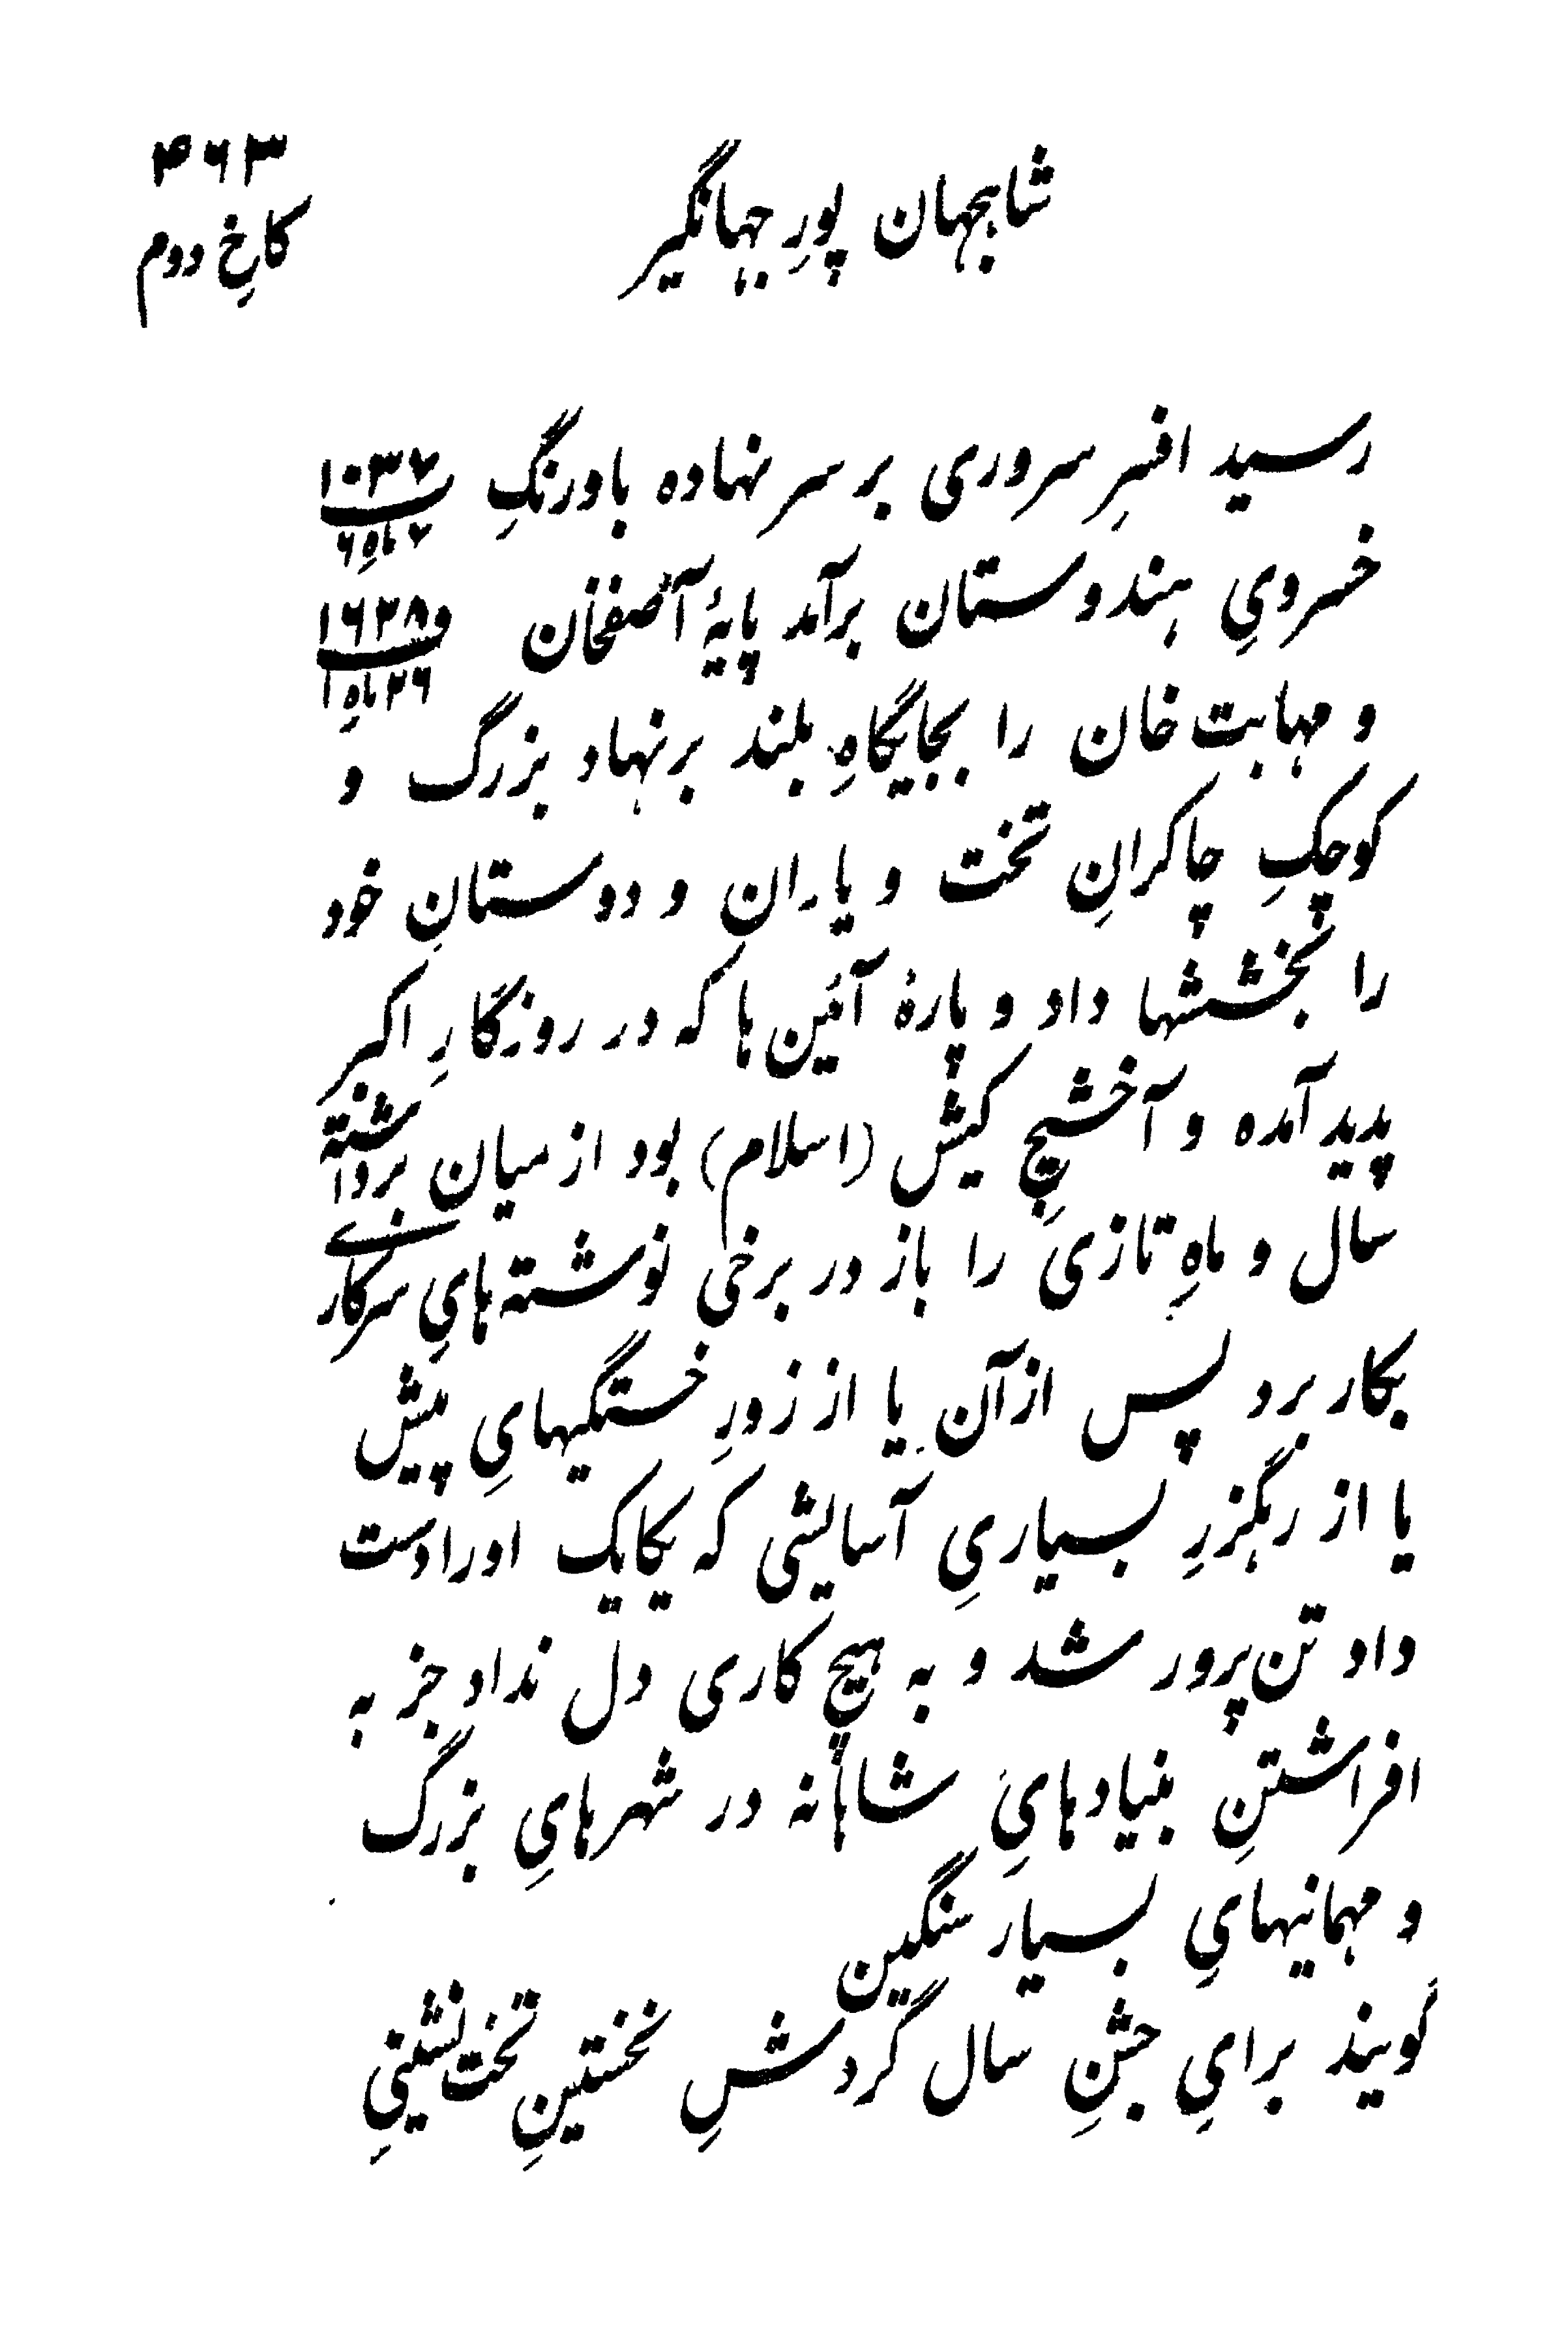 ۴۶۳
کاخِ دوم
شاهجهان پورِ جهانگیر
رسید افسرِ سروری بر سر نهاده باورنگِ ۱۰۳۷
۷ ماهِ ۶
خسرویِ هندوستان برآمد پایهٔ آصفخان و ۱۶۲۸
۲۶ ماهِ ۱
و مهابت خان را بجایگاهِ بلند برنهاد بزرگ و
کوچکِ چاکرانِ تخت و یاران و دوستانِ خود
را بخششها داد و پارهٔ آئین ها که در روزگارِ اکبر
پدید آمده و آخشیجِ کیش (اسلام) بود از میان برداشته
سال و ماهِ تازی را باز در برخی نوشته هایِ سرکاری
بکار برد پس از آن یا از زورِ خستگیهایِ پیش
یا از رهگزرِ بسیاریِ آسایشی که یکایک اورا دست
داد تن پرور شد و به هیچ کاری دل نداد جز به
افراشتنِ بنیادهایِ شاهانه در شهرهایِ بزرگ
و مهمانیهایِ بسیار سنگین
گویند برایِ جشنِ سال گردشِ نخستینِ تخت نشینیِ